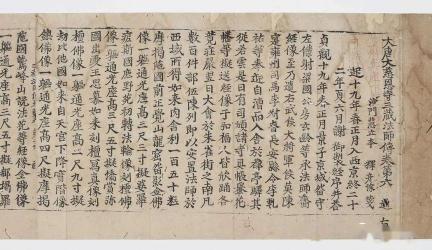 大唐大慈恩寺三藏法師傳卷第六
沙門慧立本 釋彥悰箋
起十九年春正月入西京終二十
二年夏六月謝 御製經序并答
貞觀十九年春正月景子京城留守
左僕射梁國公房玄齡等承法師齎
經像至乃遣右武侯大將軍侯莫陳
寔雍州司馬李叔眘長安縣令李乾
祐等奉迎自漕而入舍於都亭驛其
從若雲是日有司頒諸寺具帳輿花
幡等擬送經像于弘福人皆欣踊各
競莊嚴翌日大會於朱雀街之南凡
數百件部伍陳列即以安置法師於
西域所得如來肉舍利一百五十粒
摩揭陀國前正覺山龍窟留影金佛
像一軀通光座高三尺三寸擬婆羅
痆斯國鹿野苑初轉法輪像刻檀佛
像一軀通光座高三尺五寸擬憍賞彌
國出愛王思慕如來刻檀寫真像刻
檀佛像一軀通光座高二尺九寸擬
劫比他國如來自天宮下降寶階像
銀佛像一軀通光座高四尺擬摩揭
陀國鷲峯山說法花等經像金佛像
一軀通光座高三尺五寸擬那揭羅